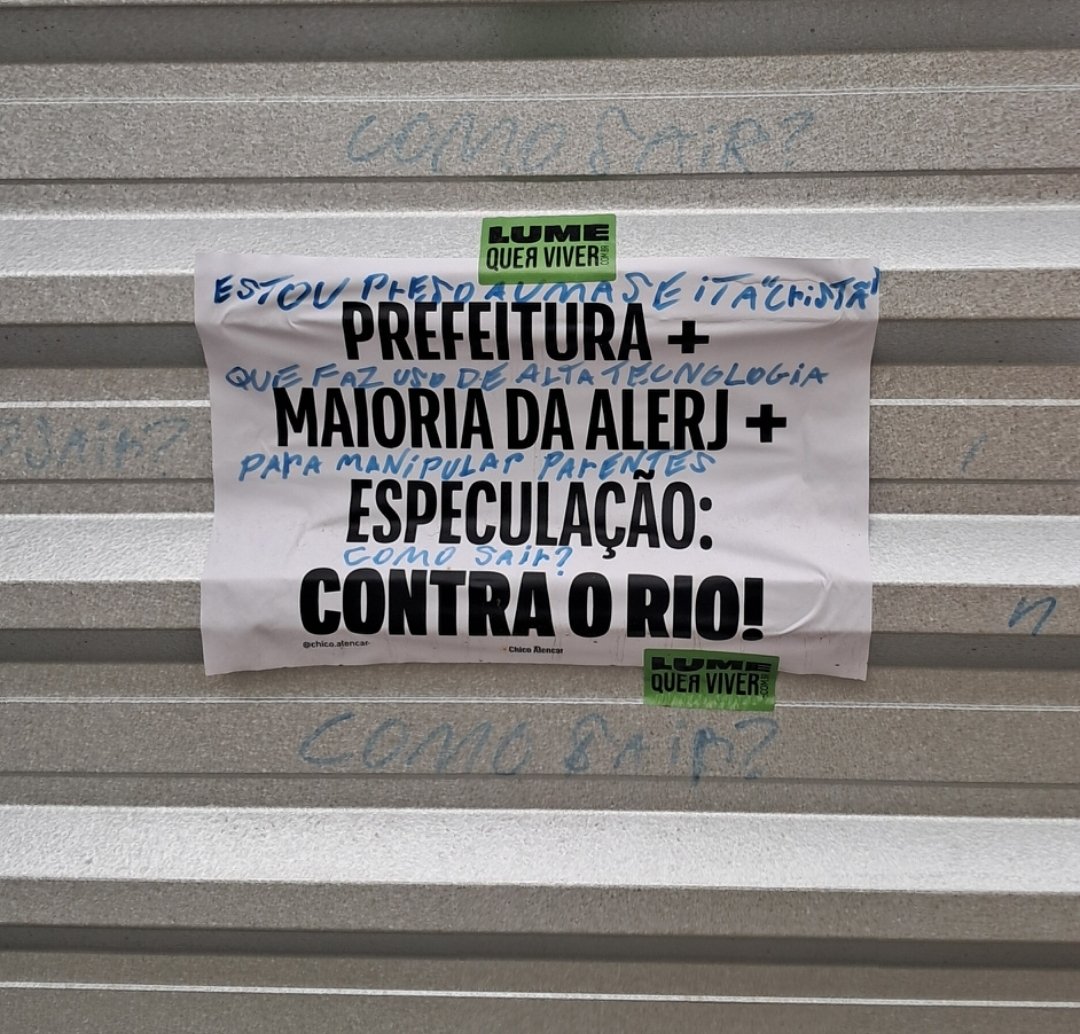 COMO SAIR?
LUME
QUER VIVER
ESTOU PRESO A UMA SEITA "CRISTÃ"
PREFEITURA +
QUE FAZ USO DE ALTA TECNOLOGIA
MAIORIA DA ALERJ +
SAIR?
PARA MANIPULAR PARENTES
ESPECULAÇÃO:
COMO SAIR?
CONTRA O RIO!
@chico.alencar
Chico Alencar
LUME
QUER VIVER
COMO SAIR?